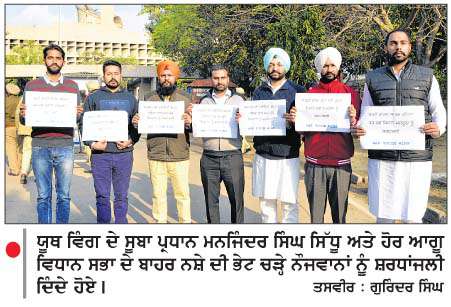 ਯੂਥ ਵਿੰਗ ਦੇ ਸੂਬਾ ਪ੍ਰਧਾਨ ਮਨਜਿੰਦਰ ਸਿੰਘ ਸਿੱਧੂ ਅਤੇ ਹੋਰ ਆਗੂ
ਵਿਧਾਨ ਸਭਾ ਦੇ ਬਾਹਰ ਨਸ਼ੇ ਦੀ ਭੇਟ ਚੜ੍ਹੇ ਨੌਜਵਾਨਾਂ ਨੂੰ ਸ਼ਰਧਾਂਜਲੀ
ਦਿੰਦੇ ਹੋਏ। ਤਸਵੀਰ : ਗੁਰਿੰਦਰ ਸਿੰਘ